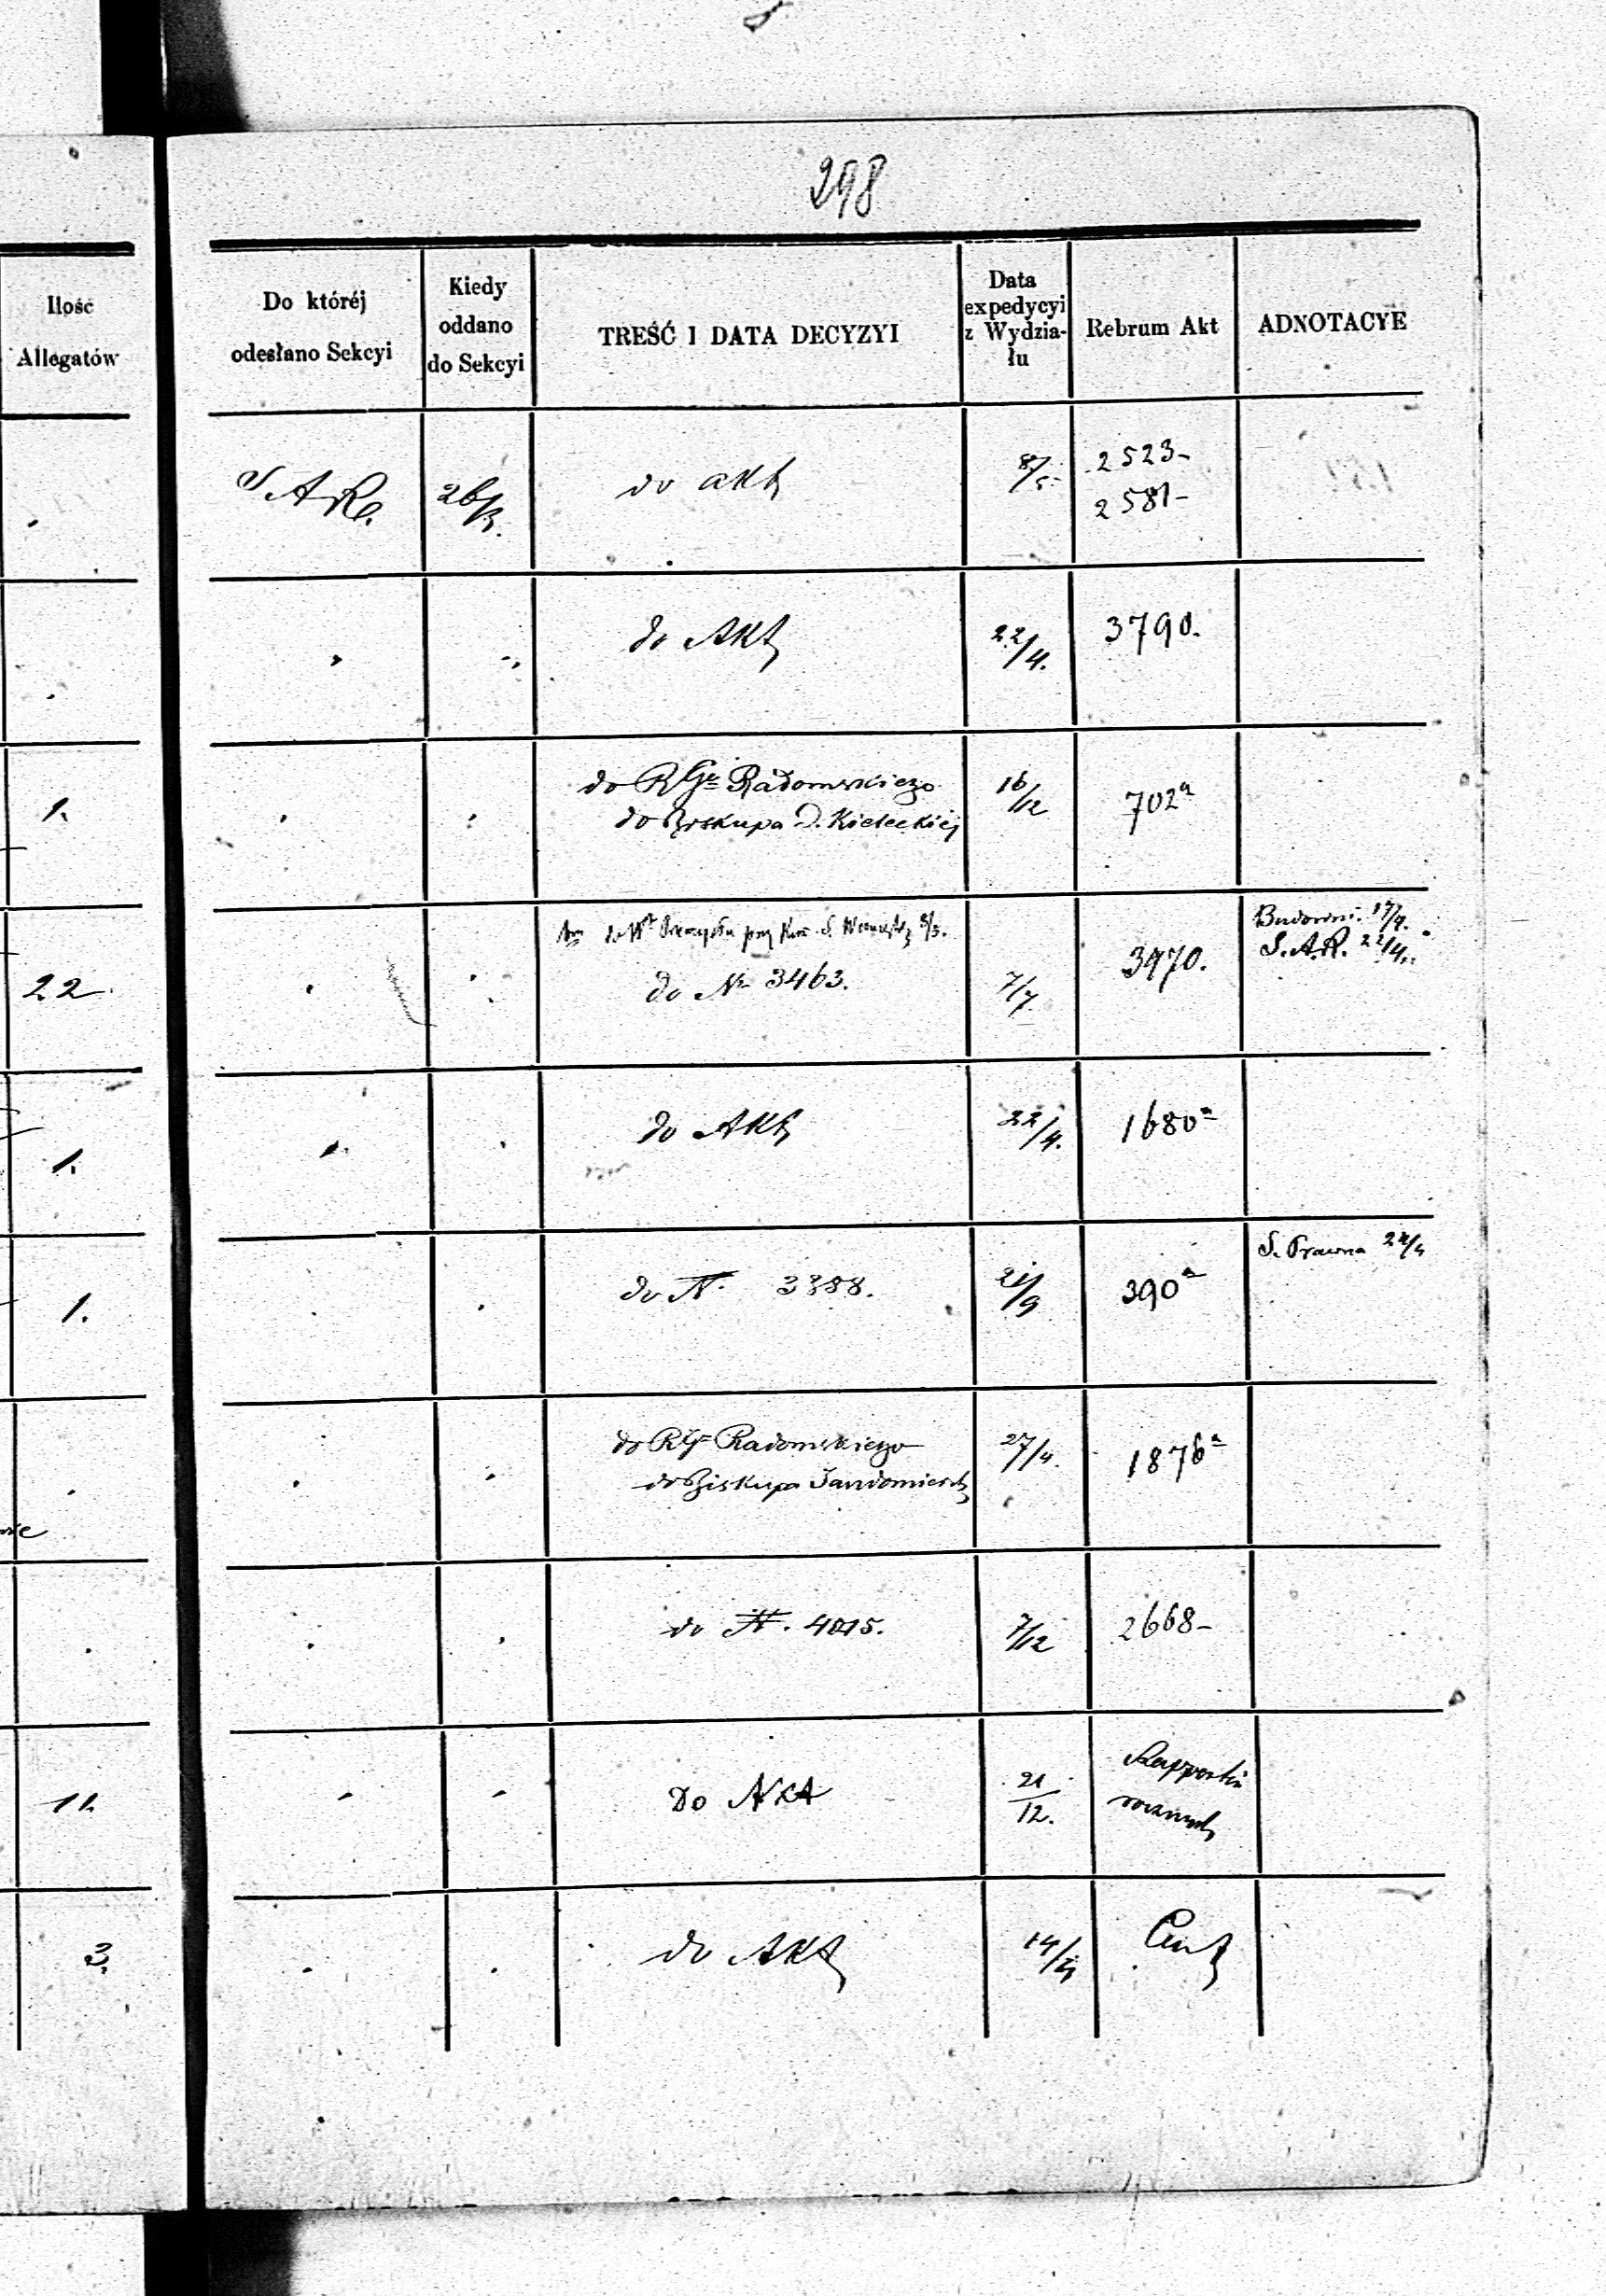 298
Ilość
Allegatów
Do któréj
odesłano Sekcyi
Kiedy
oddano
do Sekcyi
TREŚĆ I DATA DECYZYI
Data
expedycyi
z Wydzia-
łu
Rebrum Akt
ADNOTACYE
S A R. 26/3. do akt 8/5. 2523-
2581-
do Akt 22/4. 3790.
1. do R Gu Radomskiego 16/12 702a
do Biskupa D. Kieleckiej
do Wł Przemysłu przy Kom. S. Wewnętrz 5/5. Budowni. 17/4.
22 do Nr 3463. 7/7. 3970. S.A.R. 22/4.
1. do Akt 22/4. 1680a
S. Prawna 22/4
1. do N. 3388. 21/9 390a
do R Gu Radomskiego 27/4. 1876a
do Biskupa Sandomiersk
do N. 4015. 7/12 2668-
11. Do Akt 21/12. Rapportów
rocznych
3. do Akt 14/4